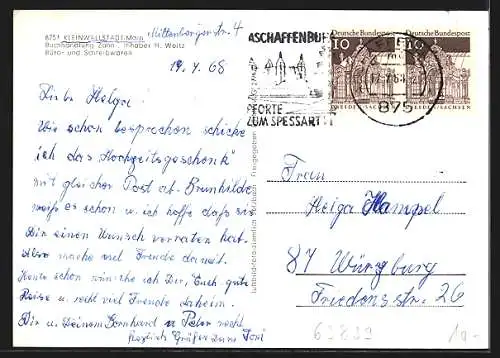 8751 KLEINWALLSTADT/Main
Buchhandlung Zahn, Inhaber H. Weitz
Büro- und Schreibwaren
Mittenbergerstr. 4
19.4.68
Liebe Helga!
Wie schon besprochen schicke
ich das „Hochzeitsgeschenk"
mit gleicher Post ab. Brunhilde
weiß es schon u. ich hoffe daß sie
Dir einen Wunsch verraten hat.
Also mache viel Freude damit.
Heute schon wünsche ich Dir, Euch gute
Reise u. recht viel Freude daheim.
Dir u. Deinem Bernhard u. Peter recht
herzlich Grüße von Toni
ASCHAFFENBURG
PFORTE
ZUM SPESSART
875
Deutsche Bundespost
10
Deutsche Bundespost
10
Luftbild freigegeben
Frau
Helga Hampel
87 Würzburg
Friedensstr. 26